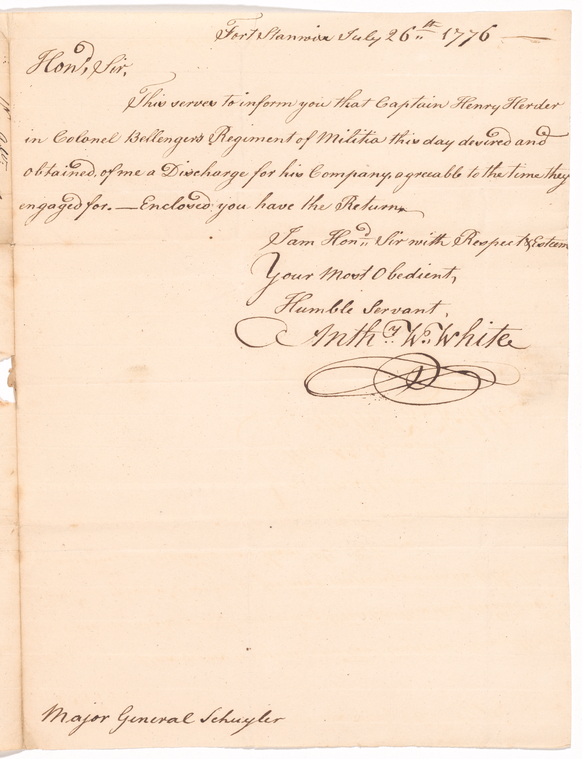 Fort Stanwix July 26.th 1776 —
Hond. Sir,
This serves to inform you that Captain Henry Herder
in Colonel Bellengers Regiment of Militia this day desired and
obtained, of me a Discharge for his Company, agreeable to the time they
engaged for. — Enclosed you have the Return,
I am Hond. Sir with Respect & Esteem
Your Most Obedient,
Humble Servant,
Anthy. Wn. White
Major General Schuyler